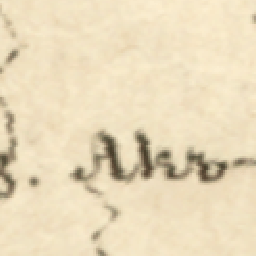 g. Akro